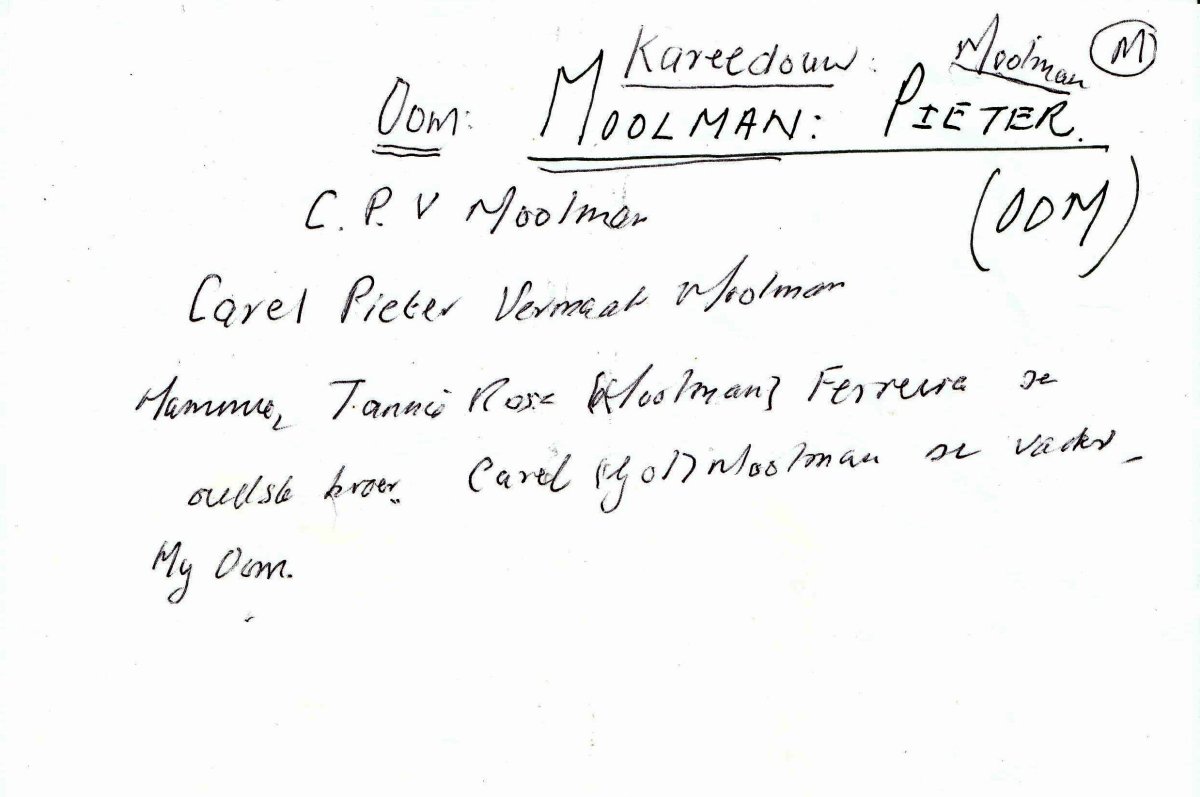 Kareedouw: Moolman M
Oom: MOOLMAN: PIETER.
C. P. V Moolman (OOM)
Carel Pieter Vermaat Moolman
Mammie, Tannie Rose [Moolman] Ferreira se
oudste broer. Carel Moolman se vader -
My Oom.